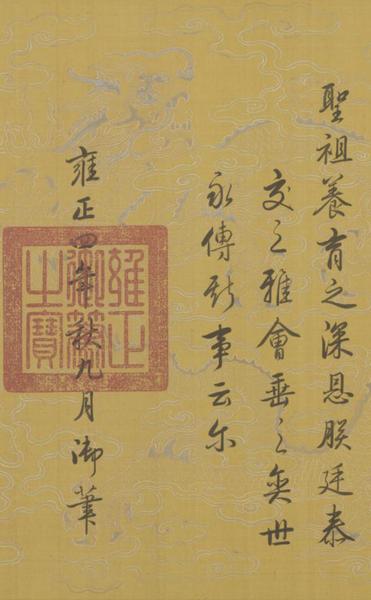 聖祖養育之深恩朕廷泰
交之雅會垂之奕世
永傳斯事云尔
雍正四年秋九月御筆
雍正御筆之寶